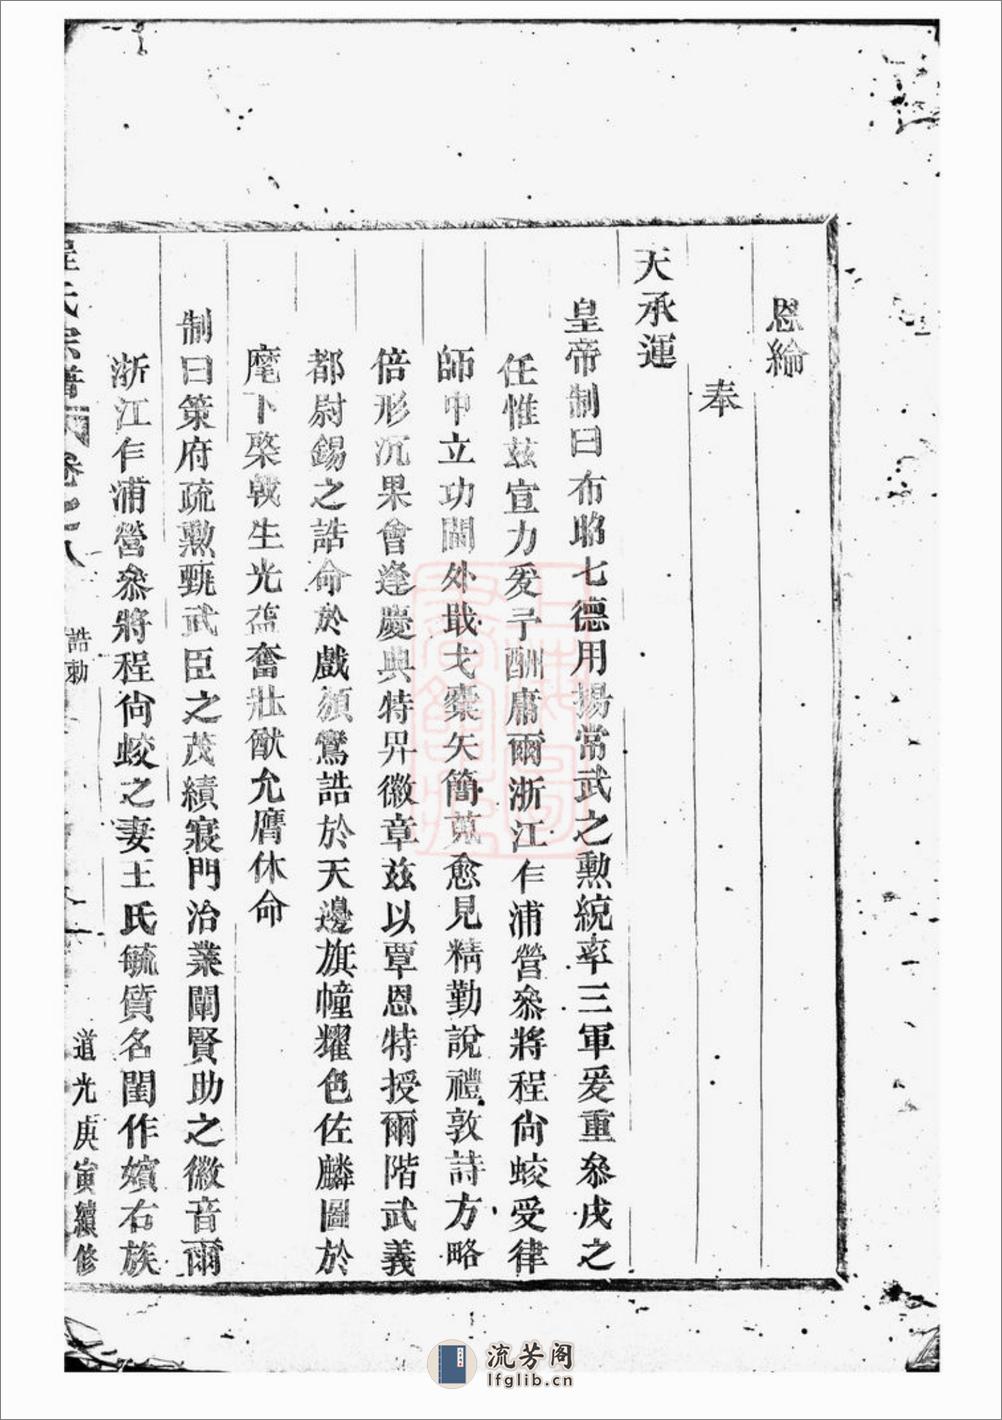 恩綸
奉
天承運
皇帝制曰布昭七德用揚常武之勲統率三軍爰重叅戎之
任惟兹宣力爰予酬庸爾浙江乍浦營叅將程尙蛟受律
師中立功閫外戢戈櫜矢簡蒐愈見精勤說禮敦詩方略
倍形沉果會逢慶典特昇徽章兹以覃恩特授爾階武義
都尉錫之誥命於戲頒鸞誥於天邊旗幢耀色佐麟圖於
麾下棨戟生光葢奮壯猷允膺休命
制曰策府疏勲甄武臣之茂績寢門治業闡賢助之徽音爾
浙江乍浦營叅將程尙蛟之妻王氏毓質名閨作嬪右族
程氏宗譜 卷之八 誥勅 道光庚寅續修
流芳阁
lfglib.cn